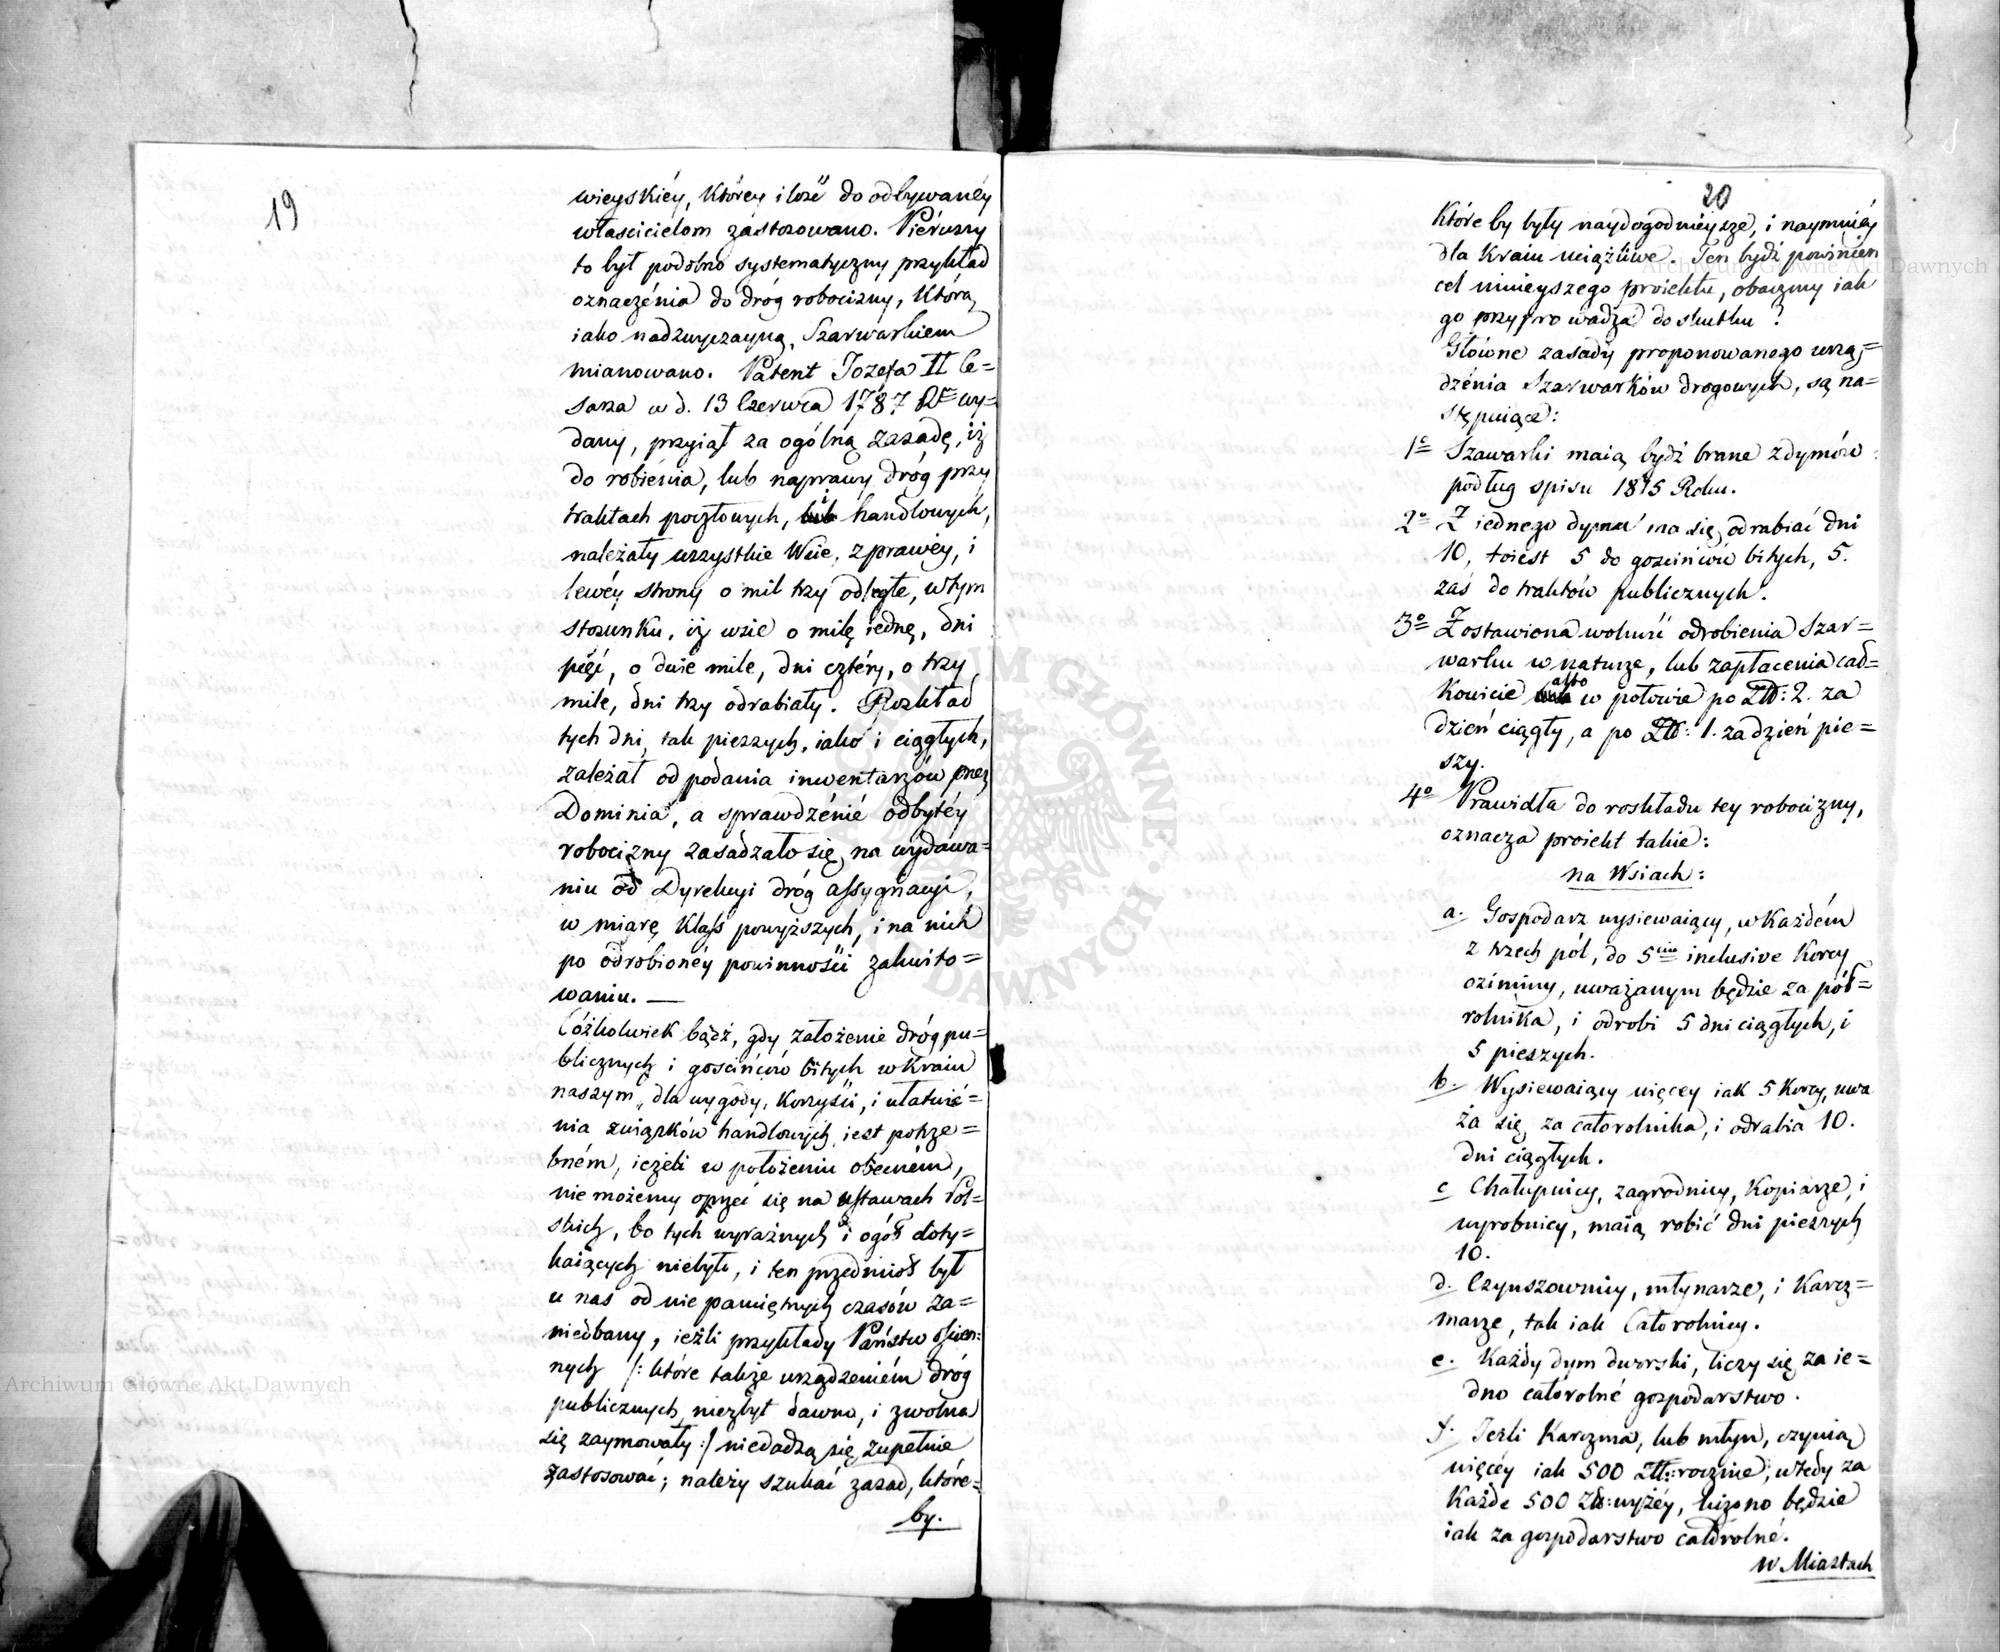 19
wieyskiéy, któréy ilość do odbywanéy
właścicielom zastosowano. Piérwszy
to był podobno systematyczny przykład
oznaczénia do dróg robocizny, którą
iako nadzwyczayną, Szarwarkiem
mianowano. Patent Jozefa II Ce=
sarza w d. 13 Czerwca 1787 wy=
dany, przyiął za ogólną zasadę, iż
do robienia, lub naprawy dróg przy
traktach pocztowych, i handlowych,
należały wszystkie Wsie, z prawéy, i
lewéy strony o mil trzy odległe, w tym
stosunku, iż wsie o milę iednę, dni
pięć, o dwie mile, dni cztéry, o trzy
mile, dni trzy odrabiały. Rozkład
tych dni, tak pieszych, iako i ciągłych,
zależał od podania inwentarzów przez
Dominia, a sprawdzénié odbytéy
robocizny zasadzało się, na wydawa=
niu od Dyrekcyi dróg assygnacyi,
w miarę Klass powyższych, i na nich
po odrobionéy powinności zakwito=
waniu. —
Cóżkolwiek bądź, gdy założenie dróg pu=
blicznych i gościńców bitych w Kraiu
naszym, dla wygody, korzyści, i ułatwié=
nia związków handlowych, iest potrze=
bném, ieżeli w położeniu obecném,
nie możemy oprzeć się na ustawach Pol=
skich, bo tych wyraźnych i ogół doty=
kaiących niebyło, i ten przedmiot był
u nas od nie pamiętnych czasów za=
niedbany, ieźli przykłady Państw ościen=
nych /: które także urządzeniém dróg
publicznych niezbyt dawno, i zwolna
się zaymowały :/ niedadzą się zupełnie
zastosować; należy szukać zasad, które=
by.
20
które by były naydogodniéysze, i naymniéy
dla Kraiu uciążliwe. Ten bydź powinien
cel ninieyszego proiektu, obaczmy iak
go przyprowadza do skutku?
Główne zasady proponowanego urzą=
dzénia Szarwarków drogowych, są na=
stępuiące:
1o Szawarki maią bydź brane z dymów
podług spisu 1815 Roku.
2o Z iednego dymu ma się odrabiać dni
10, toiest 5 do gościńców bitych, 5.
zaś do traktów publicznych.
3o Zostawiona wolność odrobienia Szar=
warku w naturze, lub zapłacenia cał=
kowicie albo w połowie po Zł: 2. za
dzień ciągły, a po Zł: 1. za dzień pie=
szy.
4o Prawidła do roskładu tey robocizny,
oznacza proiekt takie:
na Wsiach:
a. Gospodarz wysiewaiący, w każdém
z trzech pól, do 5ciu inclusive Korcy
oziminy, uważanym będzie za pół=
rolnika, i odrobi 5 dni ciągłych, i
5 pieszych.
b. Wysiewaiący więcey iak 5 Korcy, uwa
ża się, za całorolnika, i odrabia 10.
dni ciągłych.
c Chałupnicy, zagrodnicy, Kopiarze, i
wyrobnicy, maią robić dni pieszych
10.
d. Czynszownicy, młynarze, i Karcz=
marze, tak iak Całorolnicy.
e. Każdy dym dworski, liczy się, za ie=
dno całorolné gospodarstwo.
f. Jeźli Karczma, lub młyn, czynią
więcéy iak 500 Zł: rocznie, wtedy za
Każde 500 Zł: wyżéy, liczono będzie
iak za gospodarstwo całorolné.
w Miastach
Archiwum Główne Akt Dawnych
Archiwum Główne Akt Dawnych
ARCHIWUM GŁÓWNE AKT DAWNYCH